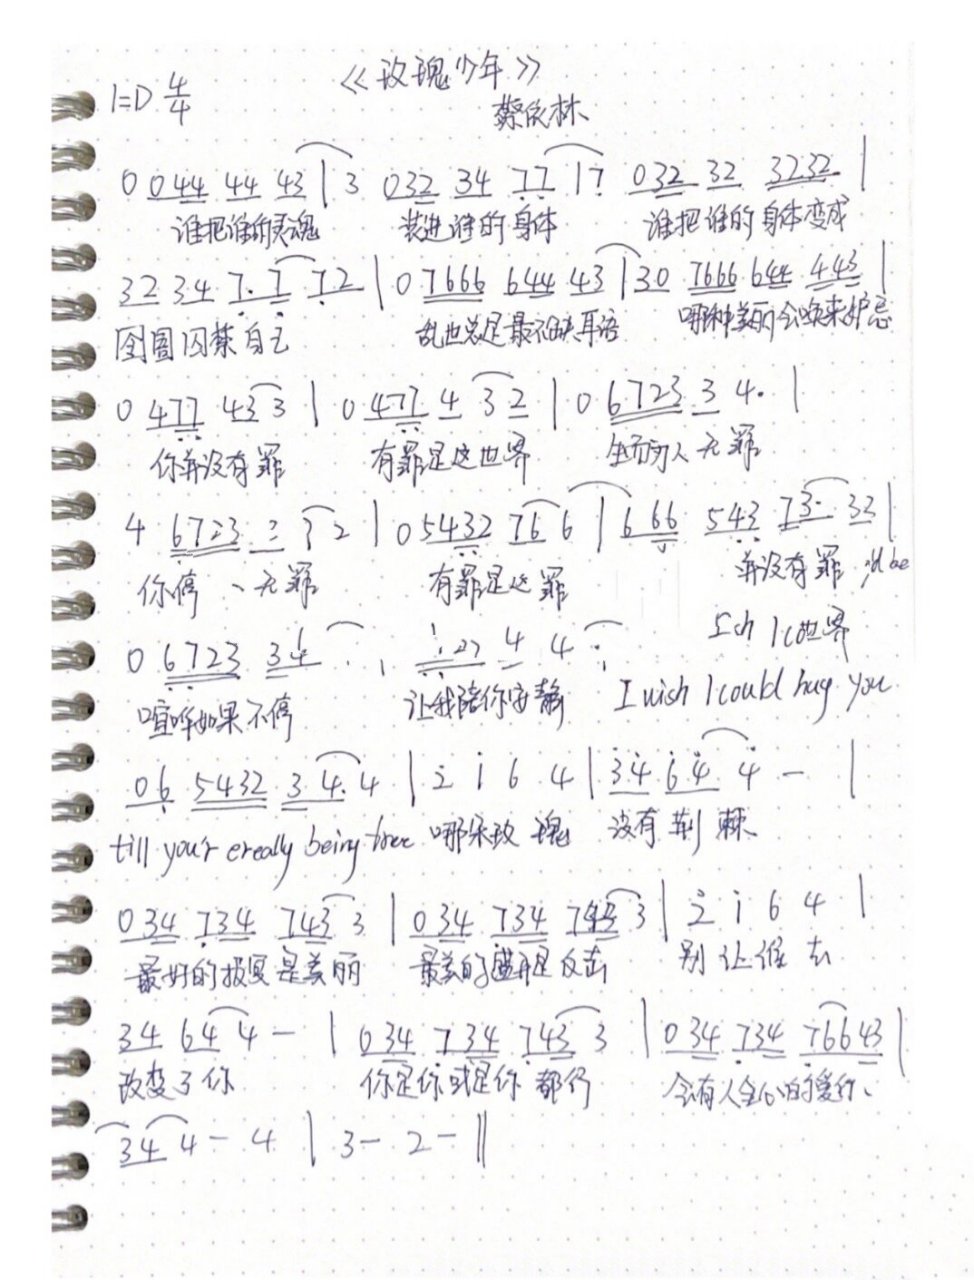 《玫瑰少年》
1=D 4/4
蔡依林
0 044 44 43 | 3 032 34 77 | 7 032 32 3232 |
谁把谁的灵魂 装进谁的身体 谁把谁的身体变成
32 34 7. 7 72 | 0 7666 644 43 | 30 7666 644 443 |
囹圄囚禁自己 乱世总是最不缺耳语 哪种美丽会唤来妒忌
0 477 43 3 | 0 477 4 3 2 | 0 6723 3 4. |
你并没有罪 有罪是这世界 无罪
4 6723 2 | 0 5432 76 6 | 6 66 543 73. 32 |
你停 无罪 有罪是这罪 并没有罪 be
I could 世界
0 6723 34 4 4
喧哗如果不停 让我陪你安静 I wish I could hug you
06 5432 3 4. 4 | 2 1 6 4 | 34 64 4 - |
till your ereally being free 哪朵玫瑰 没有荆棘
0 34 734 743 3 | 0 34 734 743 3 | 2 1 6 4 |
最好的报复是美丽 最美的盛开是反击 别让谁去
34 64 4 - | 0 34 734 743 3 | 0 34 734 76643 |
改变了你 你是你或是你都行 会有人全心的爱你
34 4 - 4 | 3 - 2 - ||